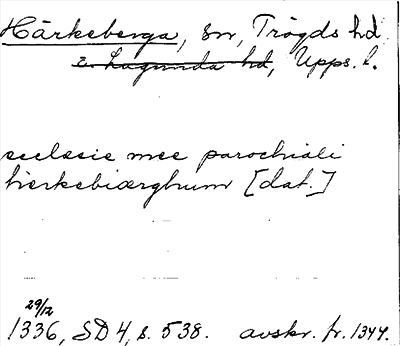 Härkeberga, sn, Trögds hd
o. Lagunda hd, Upps. l.
ecclesie mee parochiali
hierkebiærghum [dat.]
29/12
1336, SD 4, s. 538. avskr. fr. 1344.